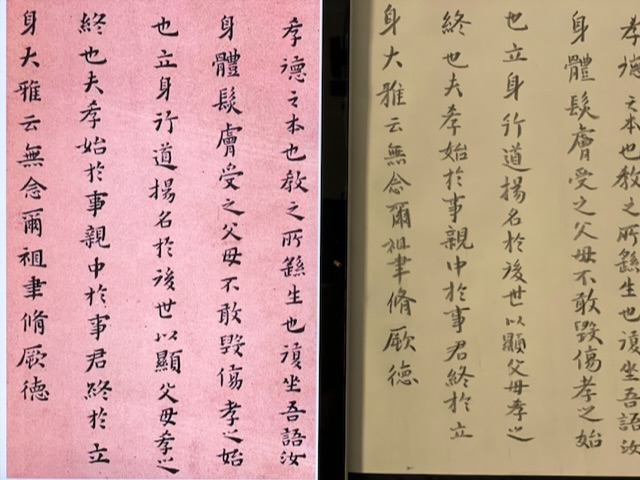 孝德之本也教之所繇生也復坐吾語汝
身體髮膚受之父母不敢毀傷孝之始
也立身行道揚名於後世以顯父母孝之
終也夫孝始於事親中於事君終於立
身大雅云無念爾祖聿脩厥德
孝德之本也教之所繇生也復坐吾語汝
身體髮膚受之父母不敢毀傷孝之始
也立身行道揚名於後世以顯父母孝之
終也夫孝始於事親中於事君終於立
身大雅云無念爾祖聿脩厥德